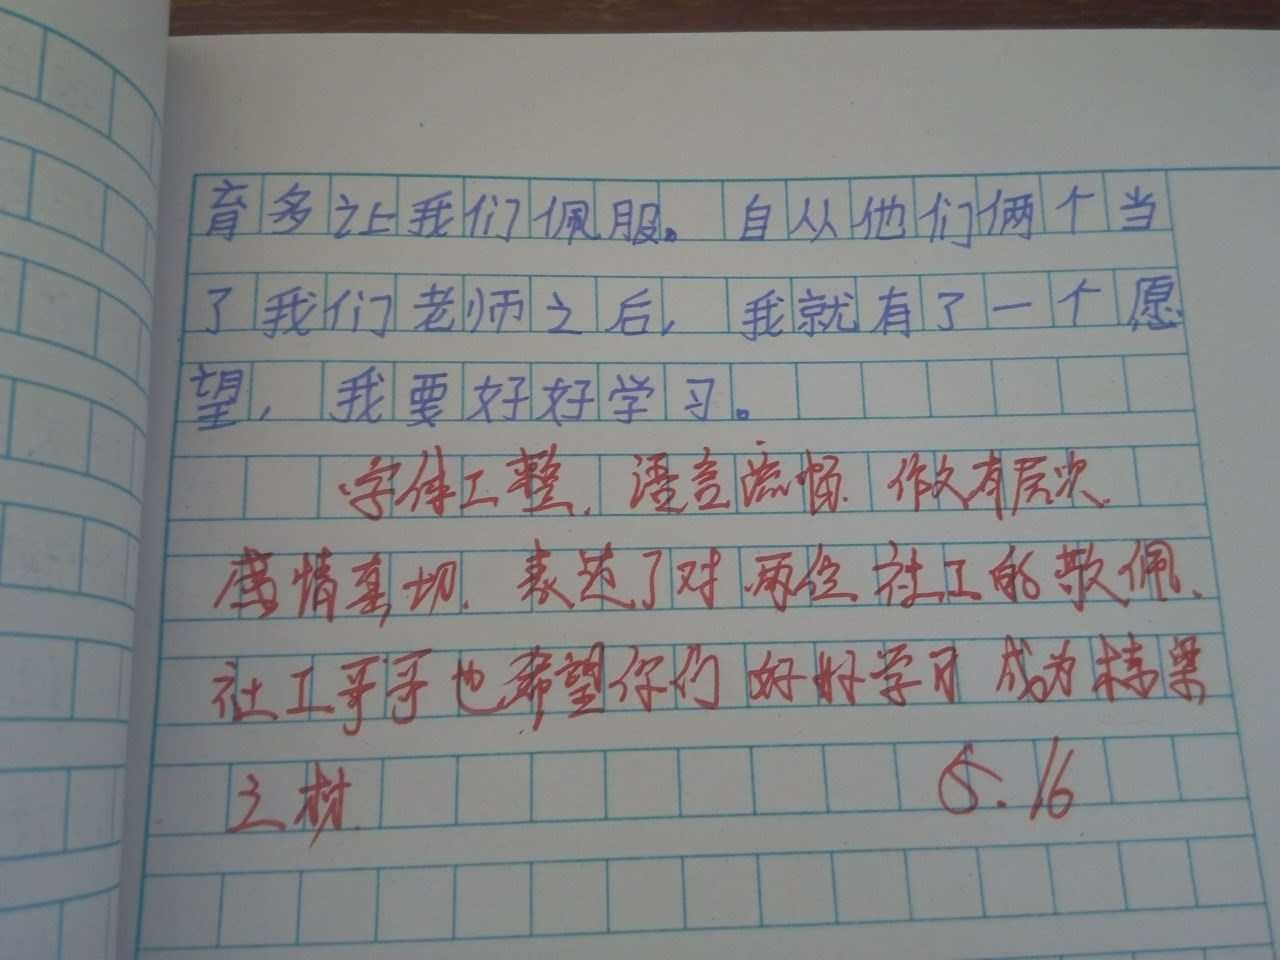 育多让我们佩服。自从他们俩个当
了我们老师之后，我就有了一个愿
望，我要好好学习。
字体工整.语言流畅.作文有层次.
感情真切.表达了对两位社工的敬佩.
社工哥哥也希望你们好好学习成为栋梁
之材.
5.16